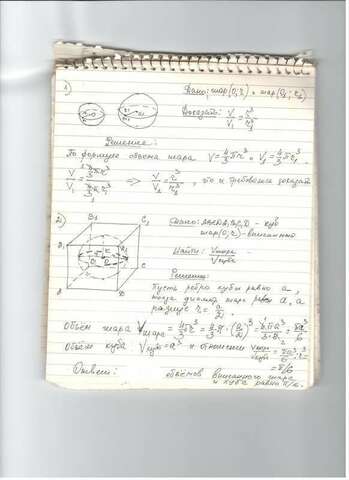 1)
Дано: шар (O; r) и шар (O₁; r₁)
Доказать: V/V₁ = r³/r₁³
Решение:
По формуле объема шара V = 4/3 πr³ и V₁ = 4/3 πr₁³
V/V₁ = (4/3 πr³)/(4/3 πr₁³) => V/V₁ = r³/r₁³, что и требовалось доказать
2)
Дано: ABCDA₁B₁C₁D₁ - куб
шар (O; r) - вписанный
Найти: Vшара/Vкуба
Решение:
Пусть ребро куба равно a,
тогда диаметр шара равен a, а
радиус r = a/2.
Объём шара Vшара = 4/3 πr³ = 4/3 π · (a/2)³ = 4πa³/3·8 = πa³/6
Объём куба Vкуба = a³ и отношение Vшара/Vкуба = πa³/6 : a³
= π/6
Ответ: объёмов вписанного шара
и куба равно π/6.